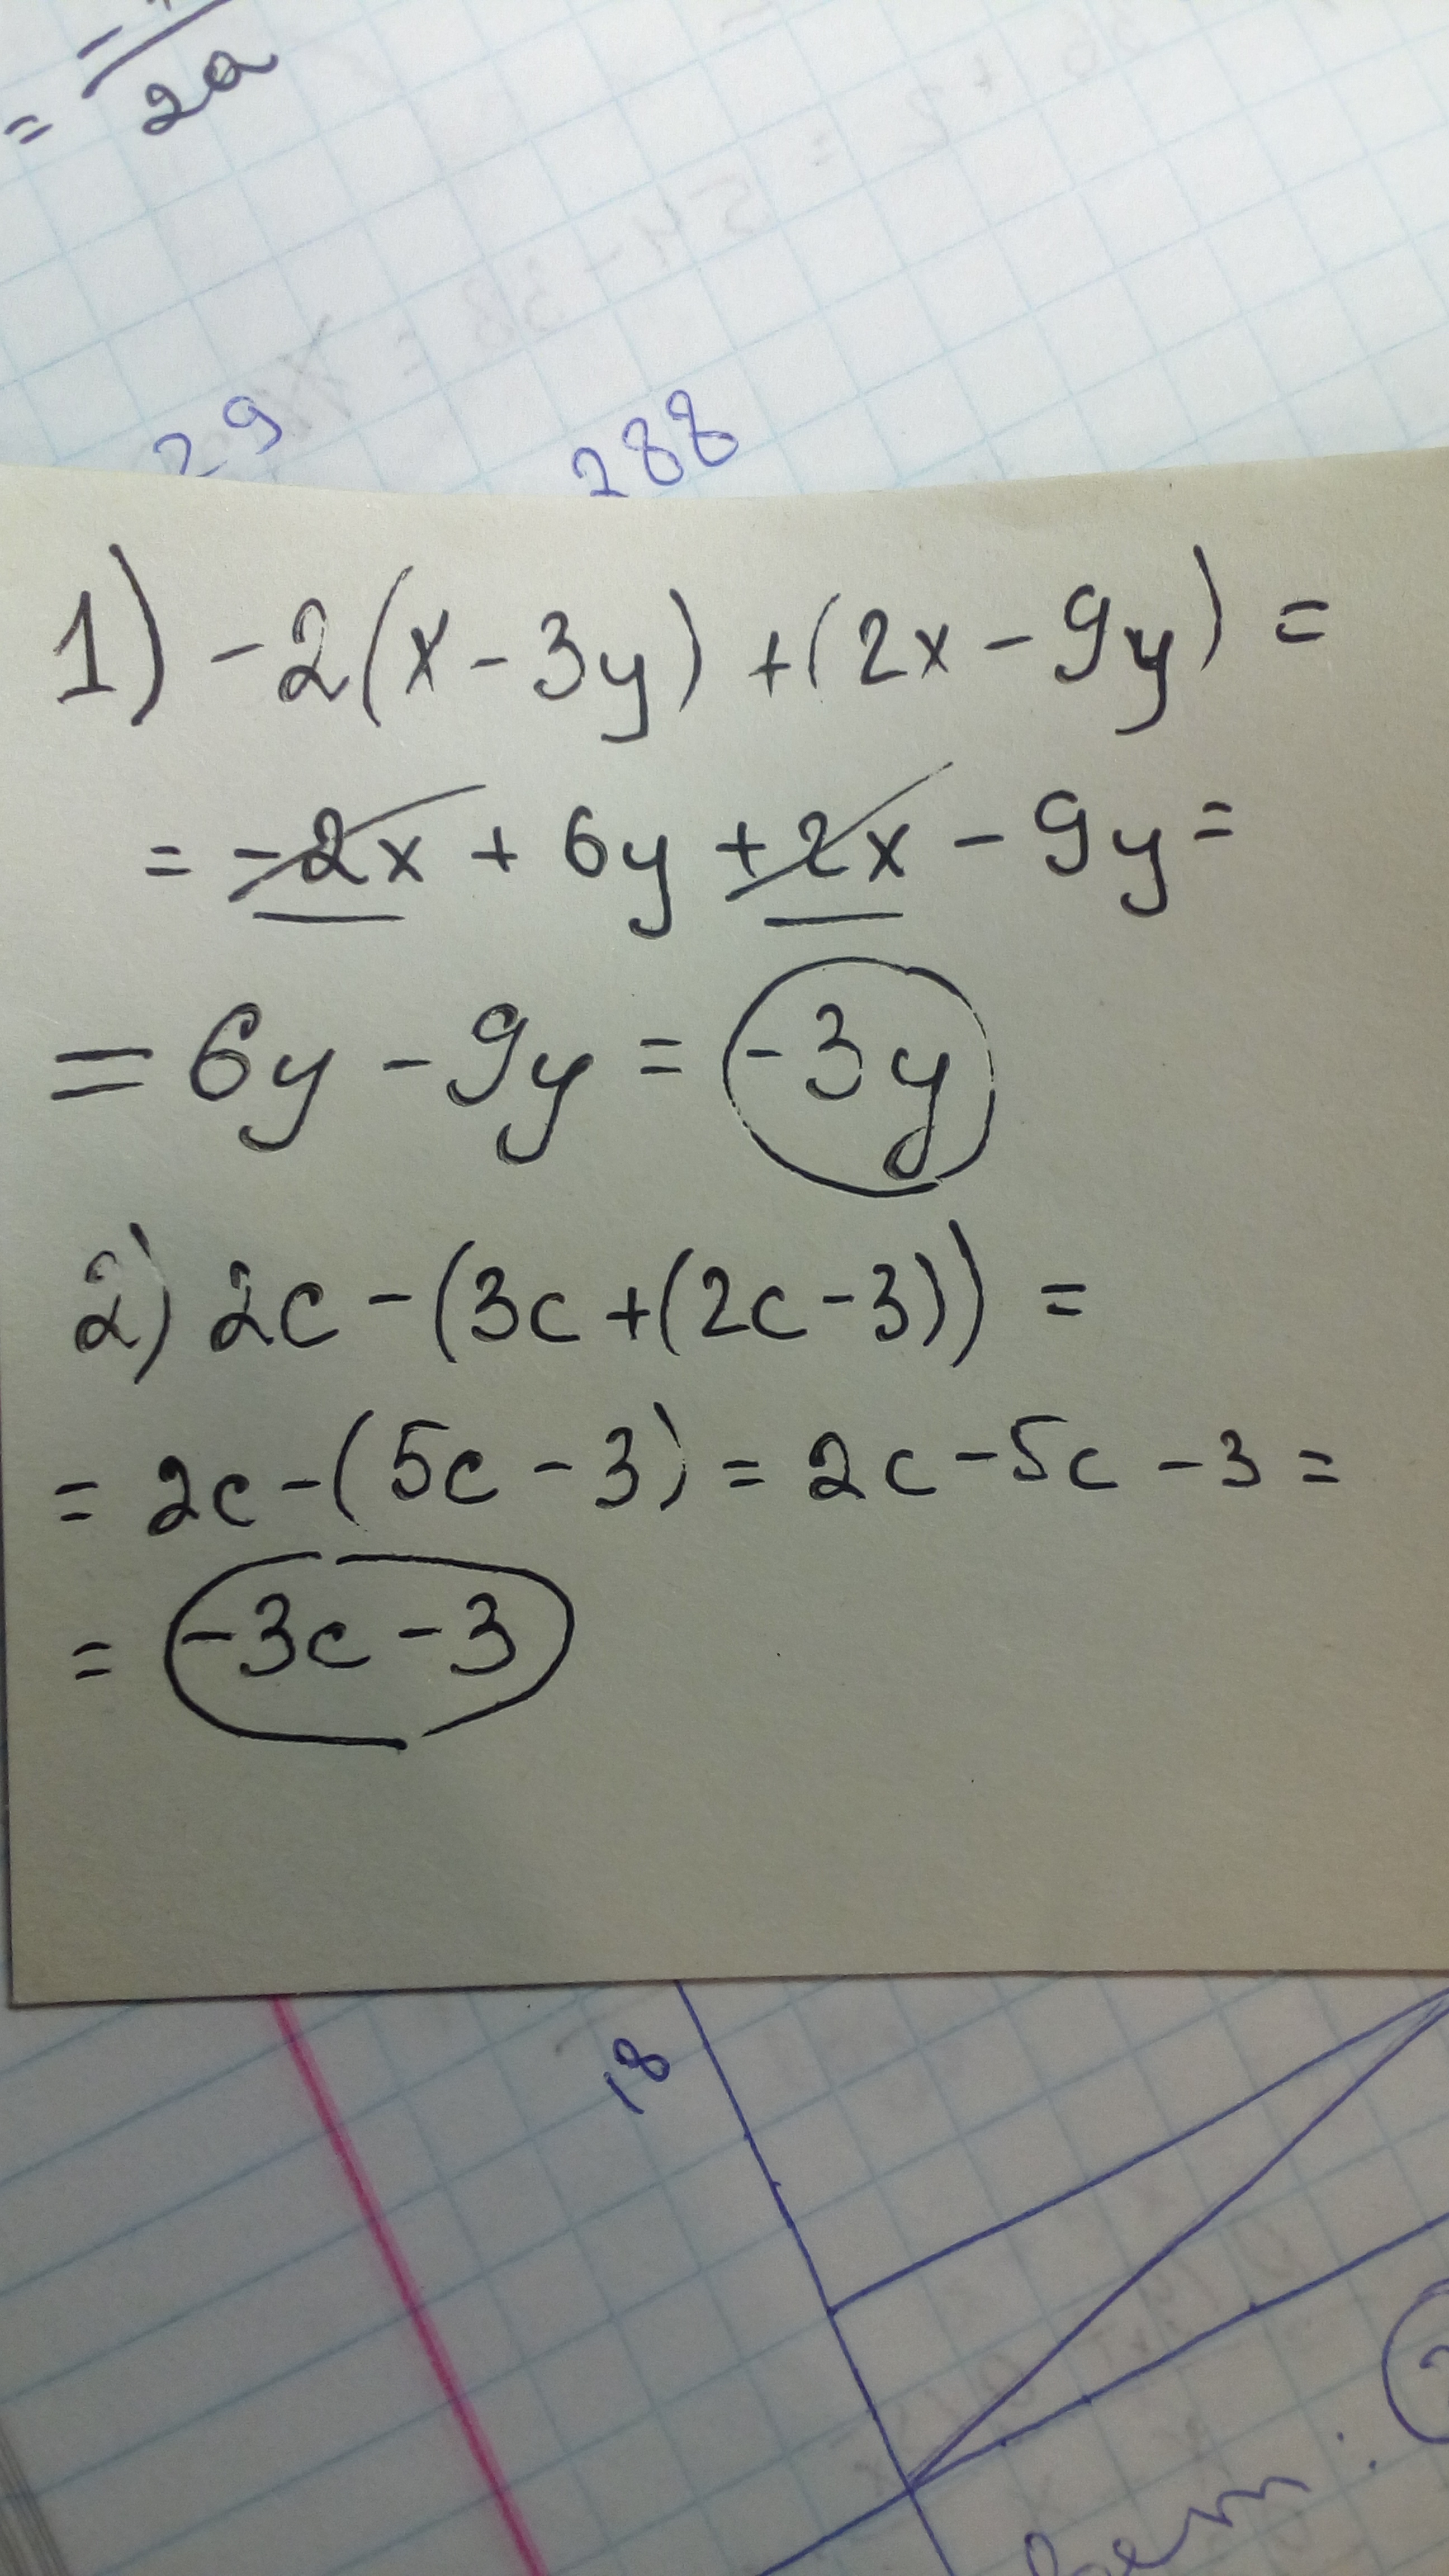 = 2a
29 288
1) -2(x-3y)+(2x-9y)=
= -2x+6y+2x-9y=
= 6y-9y = -3y
2) 2c-(3c+(2c-3))=
= 2c-(5c-3)=2c-5c-3=
= -3c-3
18